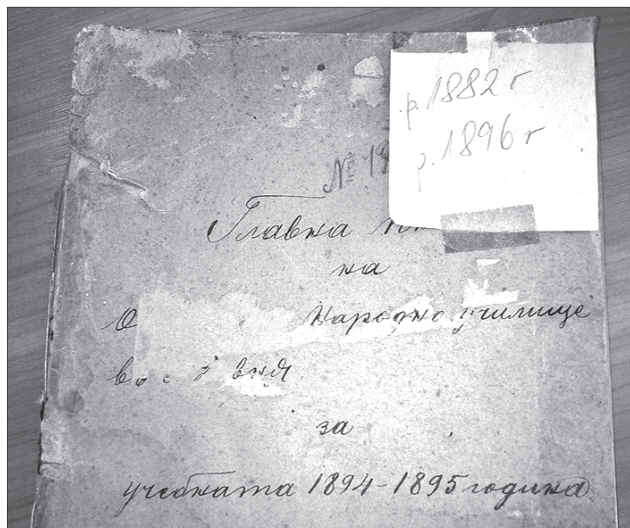 р. 1882 г
р. 1896 г
№ 18
Главна
на
Народно училище
за
учебната 1894-1895 година